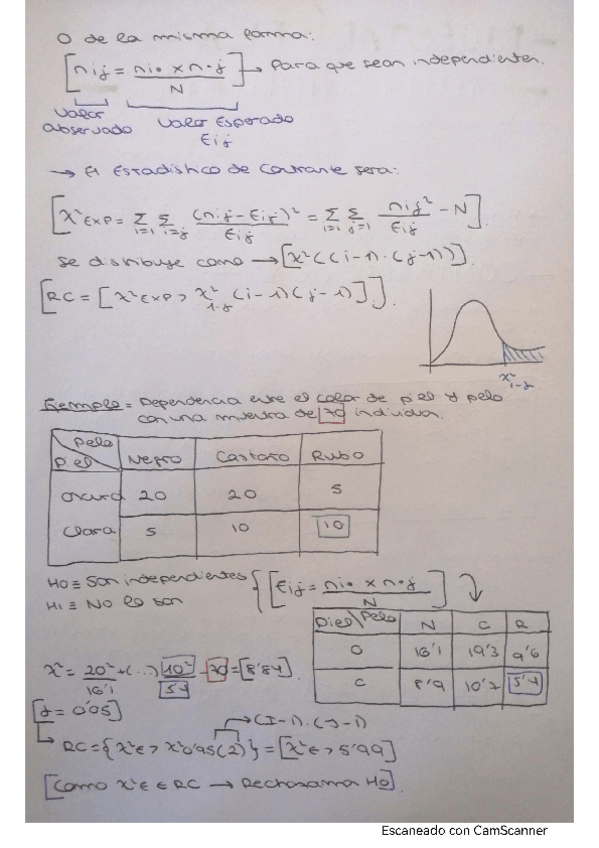 O de la misma forma:
[nij = ni• x n•j / N] → Para que sean independientes.
Valor observado
Valor Esperado Eij
→ El Estadístico de Contraste sera:
[χ²Exp = Σ i=1 Σ i=j (nij - Eij)² / Eij = Σ i=1 Σ j=1 nij² / Eij - N].
se distribuye como → [χ²((i-1)·(j-1))].
[RC = [χ²Exp > χ² 1-α (i-1)(j-1)]].
χ² 1-α
Ejemplo = Dependencia entre el color de piel y pelo
con una muestra de 70 individuos.
Pelo
Piel Negro Castaño Rubio
Oscura 20 20 5
Clara 5 10 10
H0 ≡ Son independientes { [Eij = ni• x n•j / N]
H1 ≡ No lo son
Piel\Pelo N C R
O 16'1 19'3 9'6
C 8'9 10'7 5'4
χ² = 20² / 16'1 + (...) 10² / 5'4 - 70 = [8'84].
[α = 0'05]
→ (I-1)·(J-1)
RC = {χ²E > χ²0'95(2)} = [χ²E > 5'99]
[Como χ²E ∈ RC → Rechazamos H0].
Escaneado con CamScanner